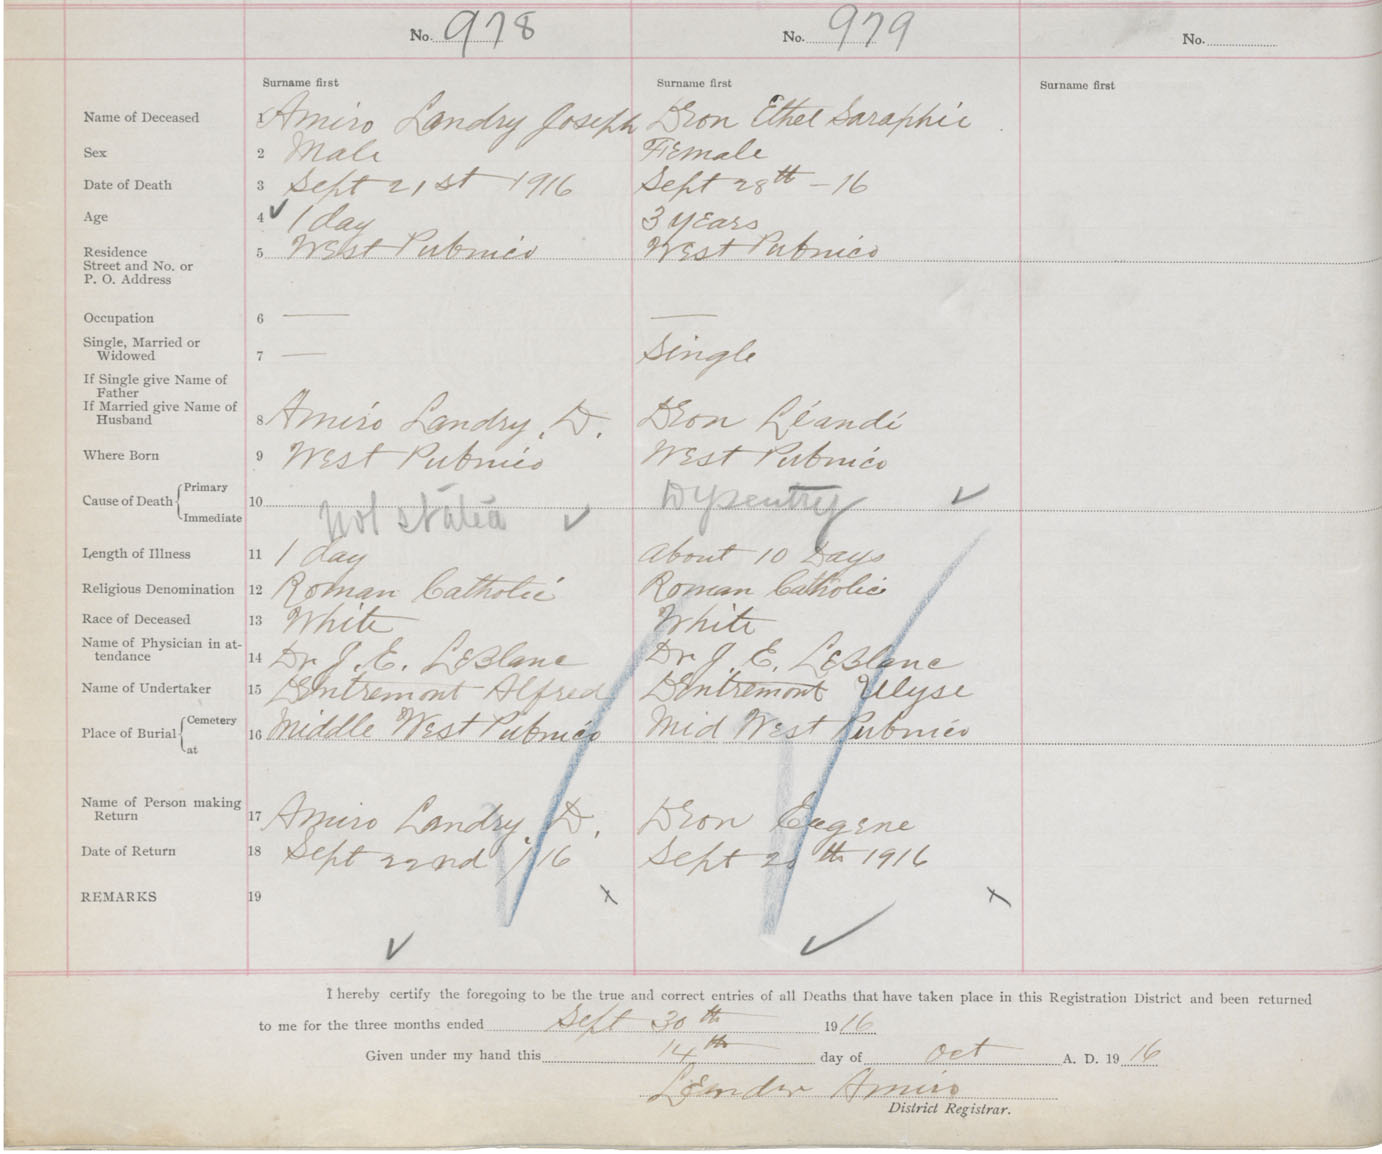 No. 978 No. 979 No.
Surname first Surname first Surname first
Name of Deceased 1 Amiro Landry Joseph DEon Ethel Saraphie
Sex 2 Male Female
Date of Death 3 Sept 21st 1916 Sept 28th - 16
Age 4 ✓ 1 day 3 years
Residence 5 West Pubnico West Pubnico
Street and No. or
P. O. Address
Occupation 6 — —
Single, Married or
Widowed 7 — Single
If Single give Name of
Father
If Married give Name of
Husband 8 Amiro Landry. D. DEon Léandé
Where Born 9 West Pubnico West Pubnico
Cause of Death { Primary 10 Not stated ✓ Dysentry ✓
Immediate
Length of Illness 11 1 day about 10 Days
Religious Denomination 12 Roman Catholic Roman Catholic
Race of Deceased 13 White White
Name of Physician in at-
tendance 14 Dr J. E. LeBlanc Dr J. E. LeBlanc
Name of Undertaker 15 DEntremont Alfred DEntremont Ulyse
Place of Burial { Cemetery 16 Middle West Pubnico Mid West Pubnico
at
Name of Person making
Return 17 Amiro Landry. D. DEon Eugene
Date of Return 18 Sept 22nd / 16 Sept th 1916
REMARKS 19 x x
✓ ✓
I hereby certify the foregoing to be the true and correct entries of all Deaths that have taken place in this Registration District and been returned
to me for the three months ended Sept 30th 1916
Given under my hand this 14th day of Oct A. D. 1916
Leander Amiro
District Registrar.